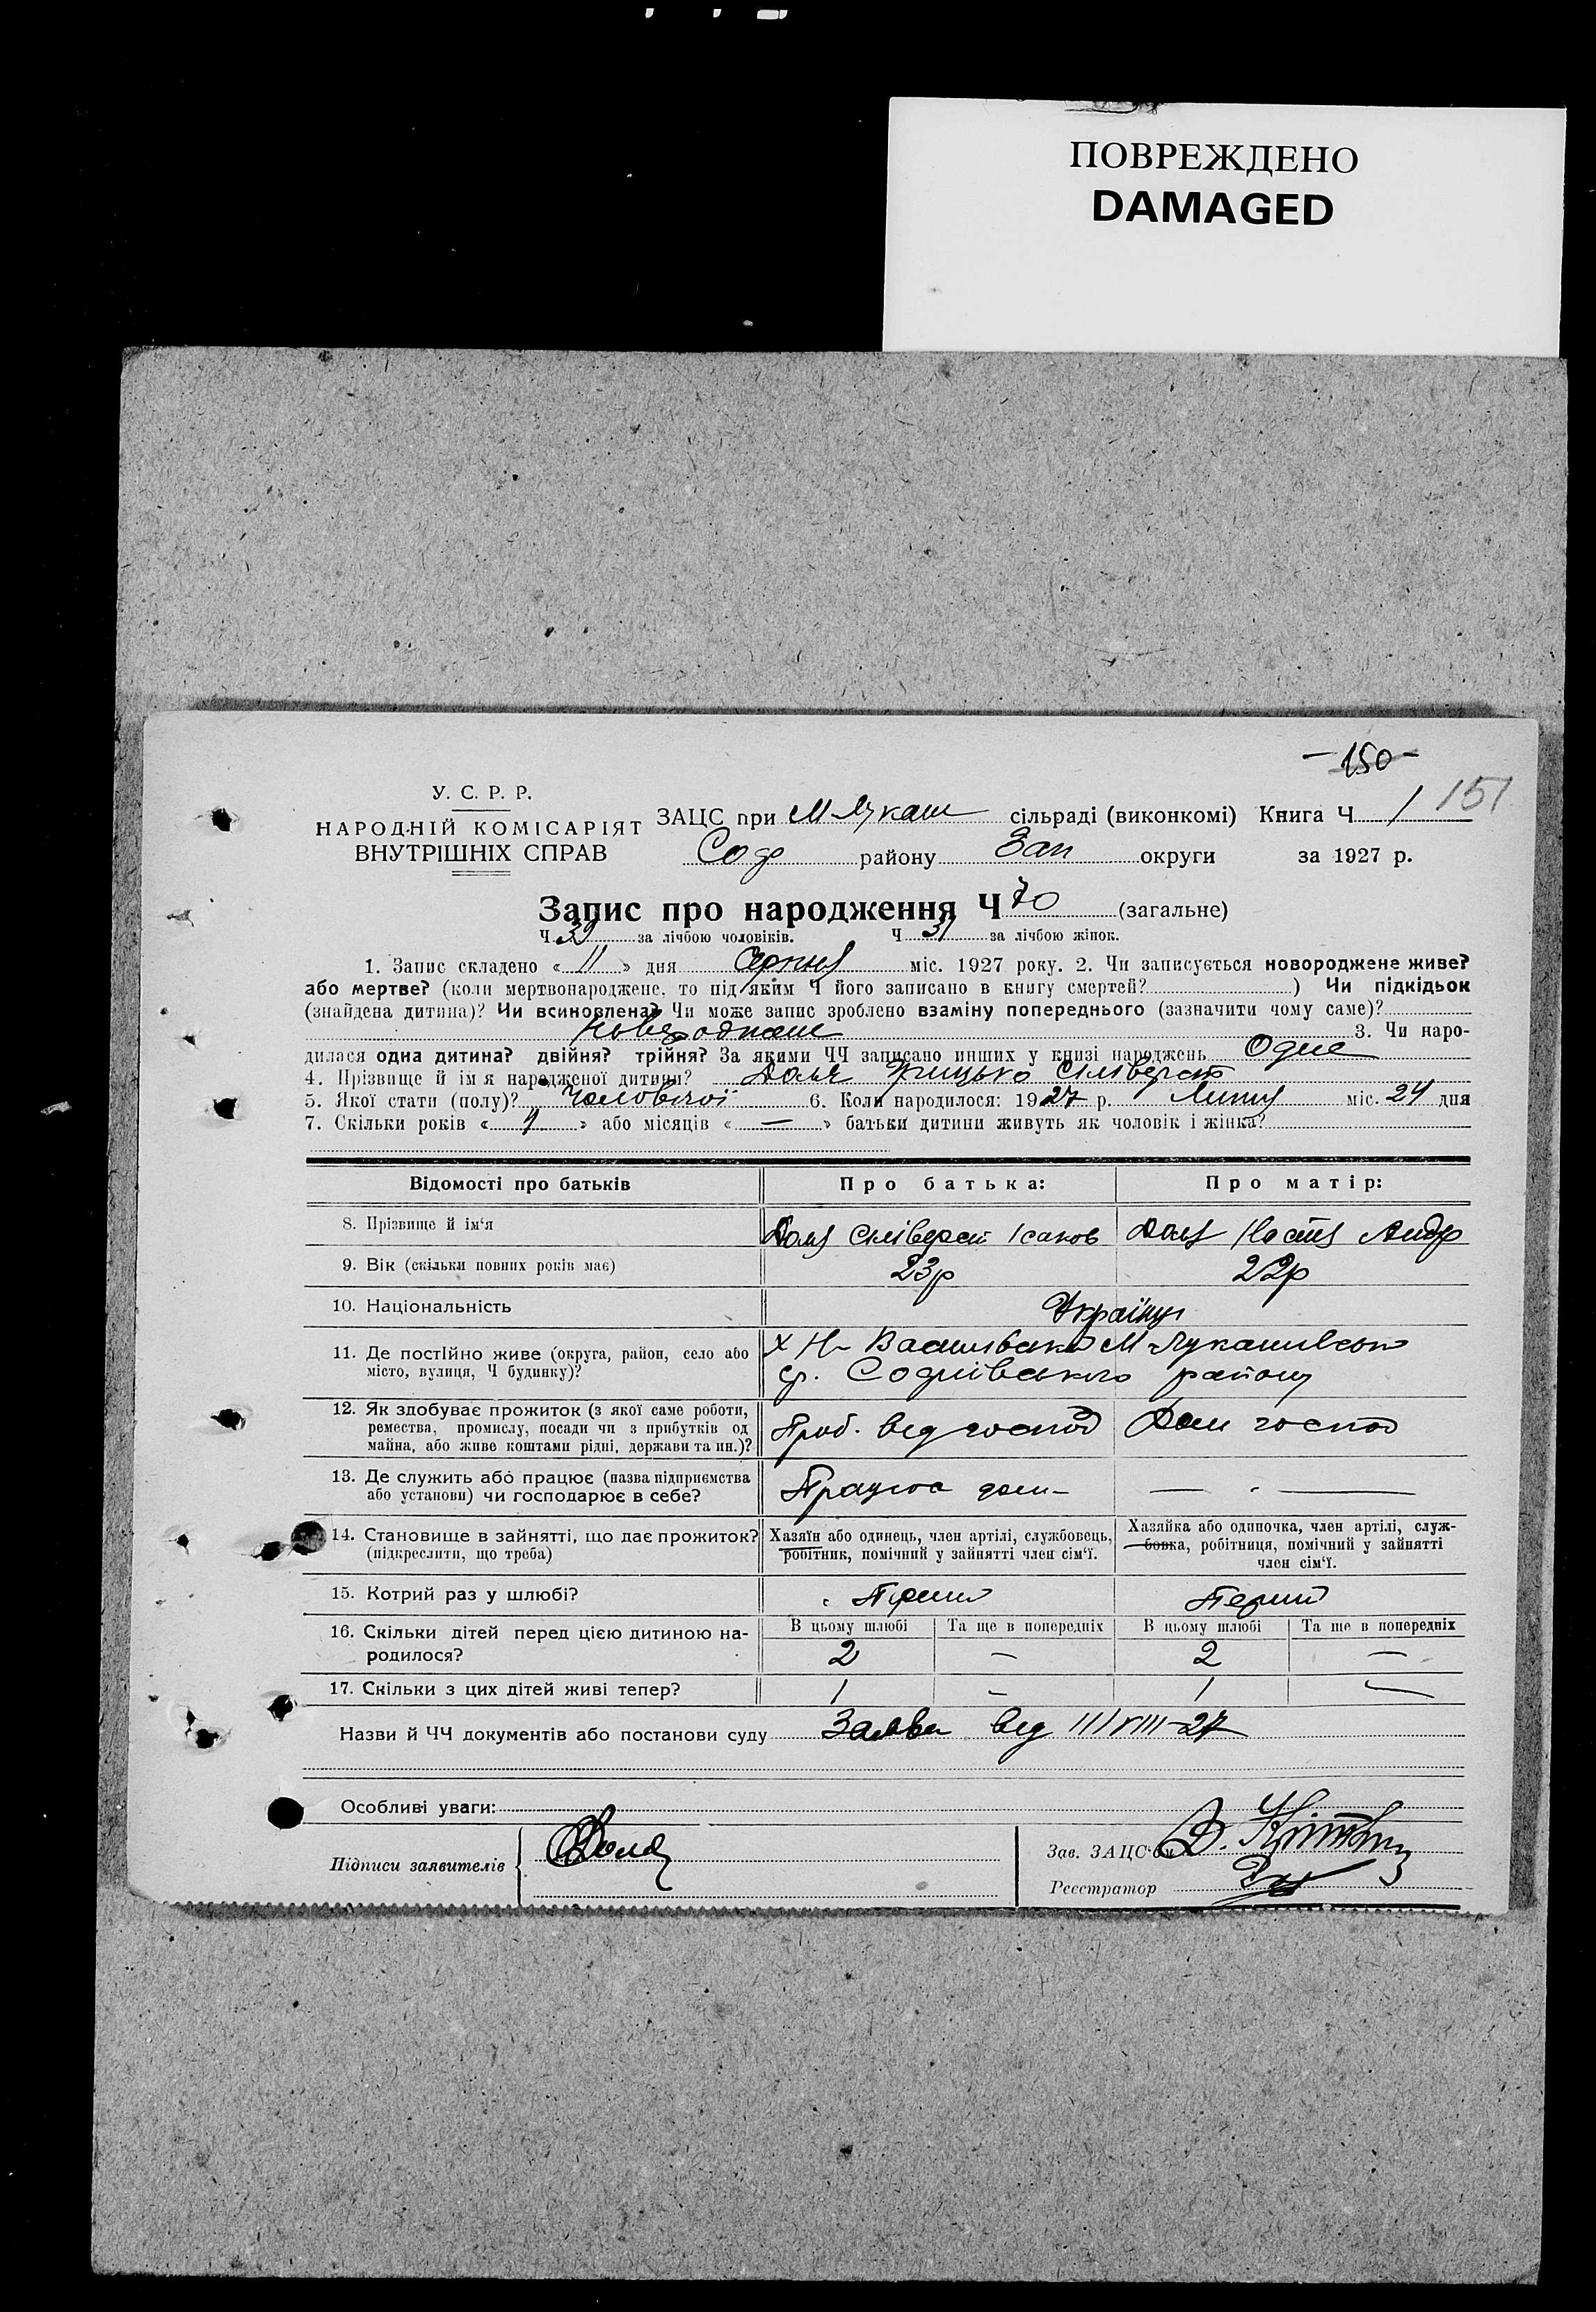 ПОВРЕЖДЕНО
DAMAGED
-150-
151
У. С. Р. Р.
НАРОДНІЙ КОМІСАРІЯТ
ВНУТРІШНІХ СПРАВ
ЗАЦС при М-Лукаш сільраді (виконкомі) Книга Ч 1
Соф району Зап округи за 1927 р.
Запис про народження Ч 70 (загальне)
Ч 39 за лічбою чоловіків. Ч 31 за лічбою жінок.
1. Запис складено « 11 » дня Серпня міс. 1927 року. 2. Чи записується новороджене живе?
або мертве? (коли мертвонароджене, то під яким Ч його записано в книгу смертей? ) Чи підкідьок
(знайдена дитина)? Чи всиновлена? Чи може запис зроблено взаміну попереднього (зазначити чому саме)?
3. Чи наро-
дилася одна дитина? двійня? трійня? За якими ЧЧ записано инших у книзі народжень Одне
4. Прізвище й ім'я народженої дитини? Доля Грицько Сілверст
5. Якої стати (полу)? Чоловічої 6. Коли народилося: 1927 р. Липня міс. 24 дня
7. Скільки років « » або місяців « — » батьки дитини живуть як чоловік і жінка?
Відомості про батьків Про батька: Про матір:
8. Прізвище й ім'я Доля Сілверст Ісаков Доля Настя Андр
9. Вік (скільки повних років має) 23р 22р
10. Національність Українці
11. Де постійно живе (округа, район, село або
місто, вулиця, Ч будинку)?
х Н- Василівка М Лукашівсько
Софиівського району
12. Як здобуває прожиток (з якої саме роботи,
ремества, промислу, посади чи з прибутків од
майна, або живе коштами рідні, держави та ин.)?
вед господ Дом господ
13. Де служить або працює (назва підприємства
або установи) чи господарює в себе?
Працює дом- —
14. Становище в зайнятті, що дає прожиток?
(підкреслити, що треба)
Хазяїн або одинець, член артілі, службовець,
робітник, помічний у зайнятті член сім'ї.
Хазяйка або одиночка, член артілі, служ-
бовка, робітниця, помічний у зайнятті
член сім'ї.
15. Котрий раз у шлюбі? Перший Перший
16. Скільки дітей перед цією дитиною на-
родилося?
В цьому шлюбі Та ще в попередніх В цьому шлюбі Та ще в попередніх
2 — 2 —
17. Скільки з цих дітей живі тепер? 1 — 1 —
Назви й ЧЧ документів або постанови суду Заява вед 11/VIII-27
Особливі уваги:
Підписи заявителів Доля
Зав. ЗАЦС'ом
Реєстратор